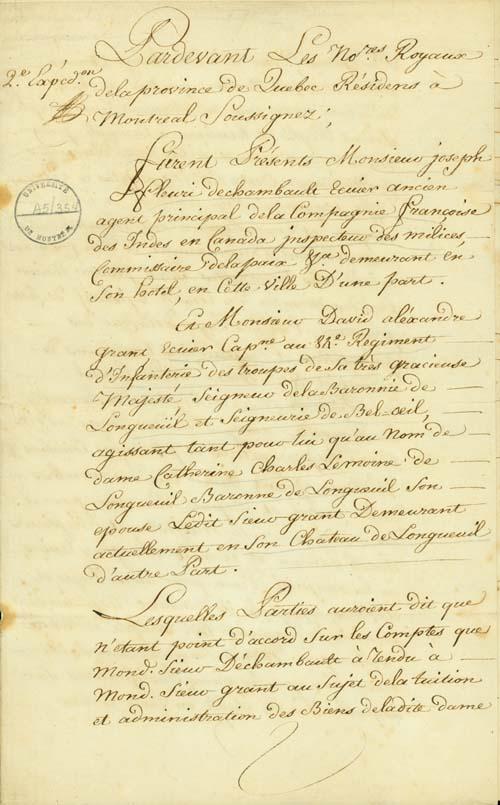 Pardevant Les No.res Royaux
2.e Expéd.on
de la province de Quebec Résidens à
Montreal Soussignez,
furent Présents Monsieur joseph
fleuri dechambault Ecuier ancien
agent principal de la Compagnie françoise
des Indes en Canada inspecteur des milices,
Commissaire de la paix &ca. demeurant en
Son hotel, en Cette Ville D'une part.
Et Monsieur David aléxandre
grant, Ecuier Cap.ne au Regiment
d'Infanterie des troupes de Sa très gracieuse
Majesté Seigneur de la Baronnie de
Longueüil et Seigneurie de Bel-œil,
agissant tant pour lui qu'au Nom de
dame Catherine Charles Lemoine de
Longueüil Baronne de Longueüil Son
epouse Ledit Sieur grant Demeurant
actuellement en Son Chateau de Longueuil
d'autre Part.
Lesquelles Parties auroient dit que
n'etant point d'accord Sur les Comptes que
Mond. Sieur Déchambault à rendu à
Mond. Sieur grant au Sujet de la tuition
et administration des Biens de ladite dame
UNIVERSITÉ
A5/354
DE MONTRÉAL